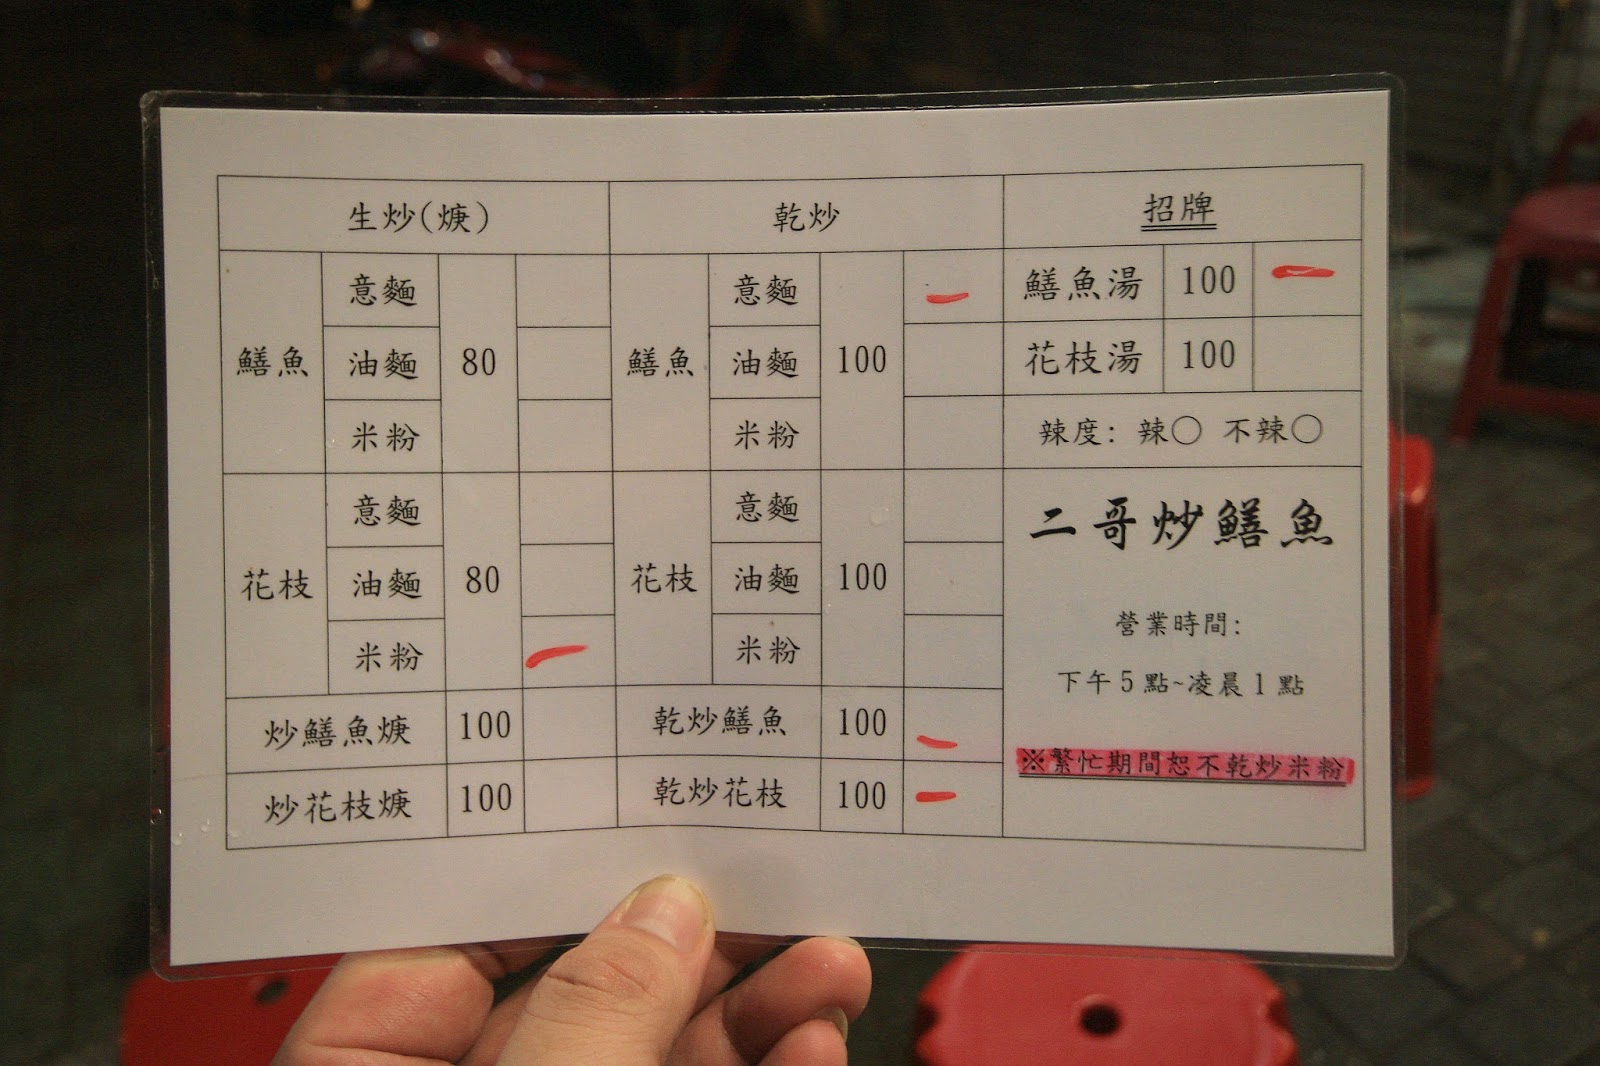 生炒(焿) 乾炒 招牌
鱔魚 意麵 80 鱔魚 意麵 100 鱔魚湯 100
油麵 油麵 花枝湯 100
米粉 米粉 辣度: 辣○ 不辣○
花枝 意麵 80 花枝 意麵 100 二哥炒鱔魚
油麵 油麵 營業時間:
米粉 米粉 下午5點~凌晨1點
炒鱔魚焿 100 乾炒鱔魚 100 ※繁忙期間恕不乾炒米粉
炒花枝焿 100 乾炒花枝 100